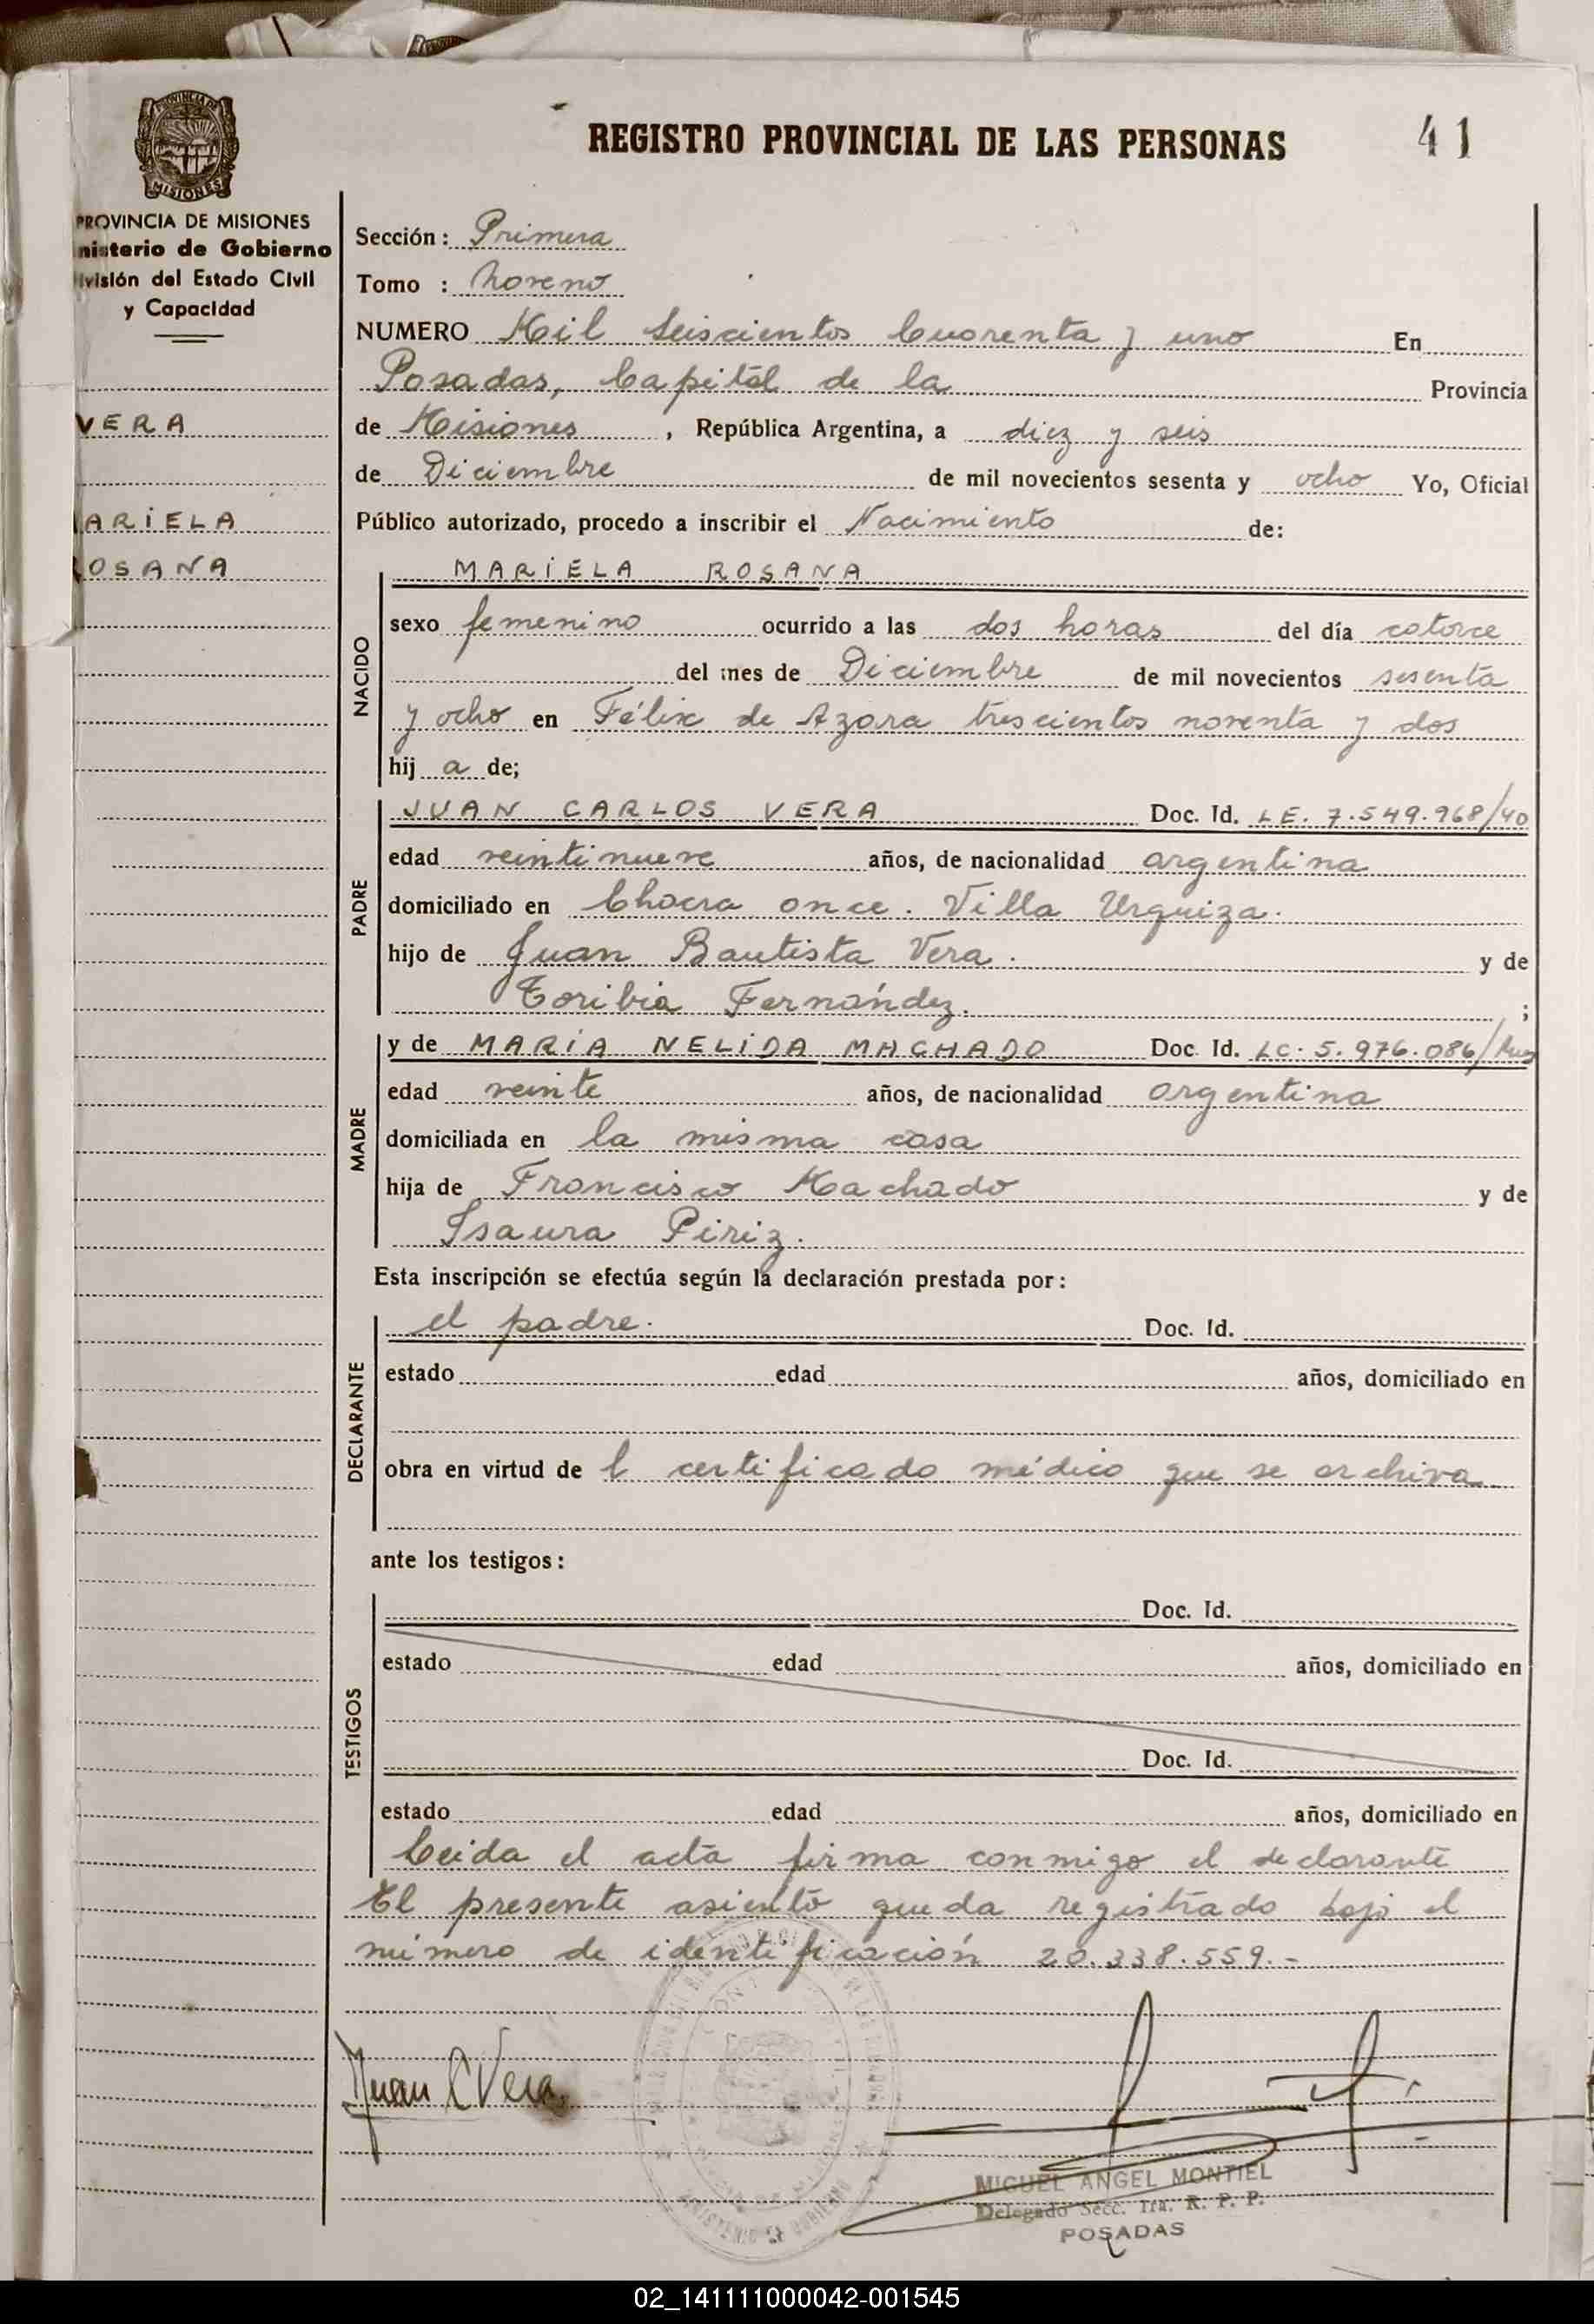 REGISTRO PROVINCIAL DE LAS PERSONAS 41
PROVINCIA DE MISIONES
MISIONES
PROVINCIA DE MISIONES
nisterio de Gobierno
ivisión del Estado Civil
y Capacidad
VERA
ARIELA
OSANA
Sección: Primera
Tomo : Noreno
NUMERO Mil Seiscientos Cuarenta y uno En
Posadas, Capital de la Provincia
de Misiones, República Argentina, a diez y seis
de Diciembre de mil novecientos sesenta y ocho Yo, Oficial
Público autorizado, procedo a inscribir el Nacimiento de:
NACIDO
MARIELA ROSANA
sexo femenino ocurrido a las dos horas del día catorce
del mes de Diciembre de mil novecientos sesenta
y ocho en Félix de Azara trescientos noventa y dos
hij a de;
PADRE
JUAN CARLOS VERA Doc. Id. LE. 7.549.968/40
edad veintinueve años, de nacionalidad argentina
domiciliado en Chacra once. Villa Urquiza.
hijo de Juan Bautista Vera. y de
Toribia Fernández. ;
MADRE
y de MARÍA NELIDA MACHADO Doc. Id. LC. 5.976.086/
edad veinte años, de nacionalidad argentina
domiciliada en la misma casa
hija de Francisco Machado y de
Isaura Piriz.
Esta inscripción se efectúa según la declaración prestada por:
DECLARANTE
el padre. Doc. Id.
estado edad años, domiciliado en
obra en virtud de l certificado médico que se archiva
ante los testigos:
TESTIGOS
Doc. Id.
estado edad años, domiciliado en
Doc. Id.
estado edad años, domiciliado en
Leida el acta firma conmigo el declarante
El presente asiento queda registrado bajo el
número de identificación 20.338.559.-
Juan C Vera
MINISTERIO DE GOBIERNO
MIGUEL ANGEL MONTIEL
Delegado Secc. 1ra. R. P. P.
POSADAS
02_141111000042-001545